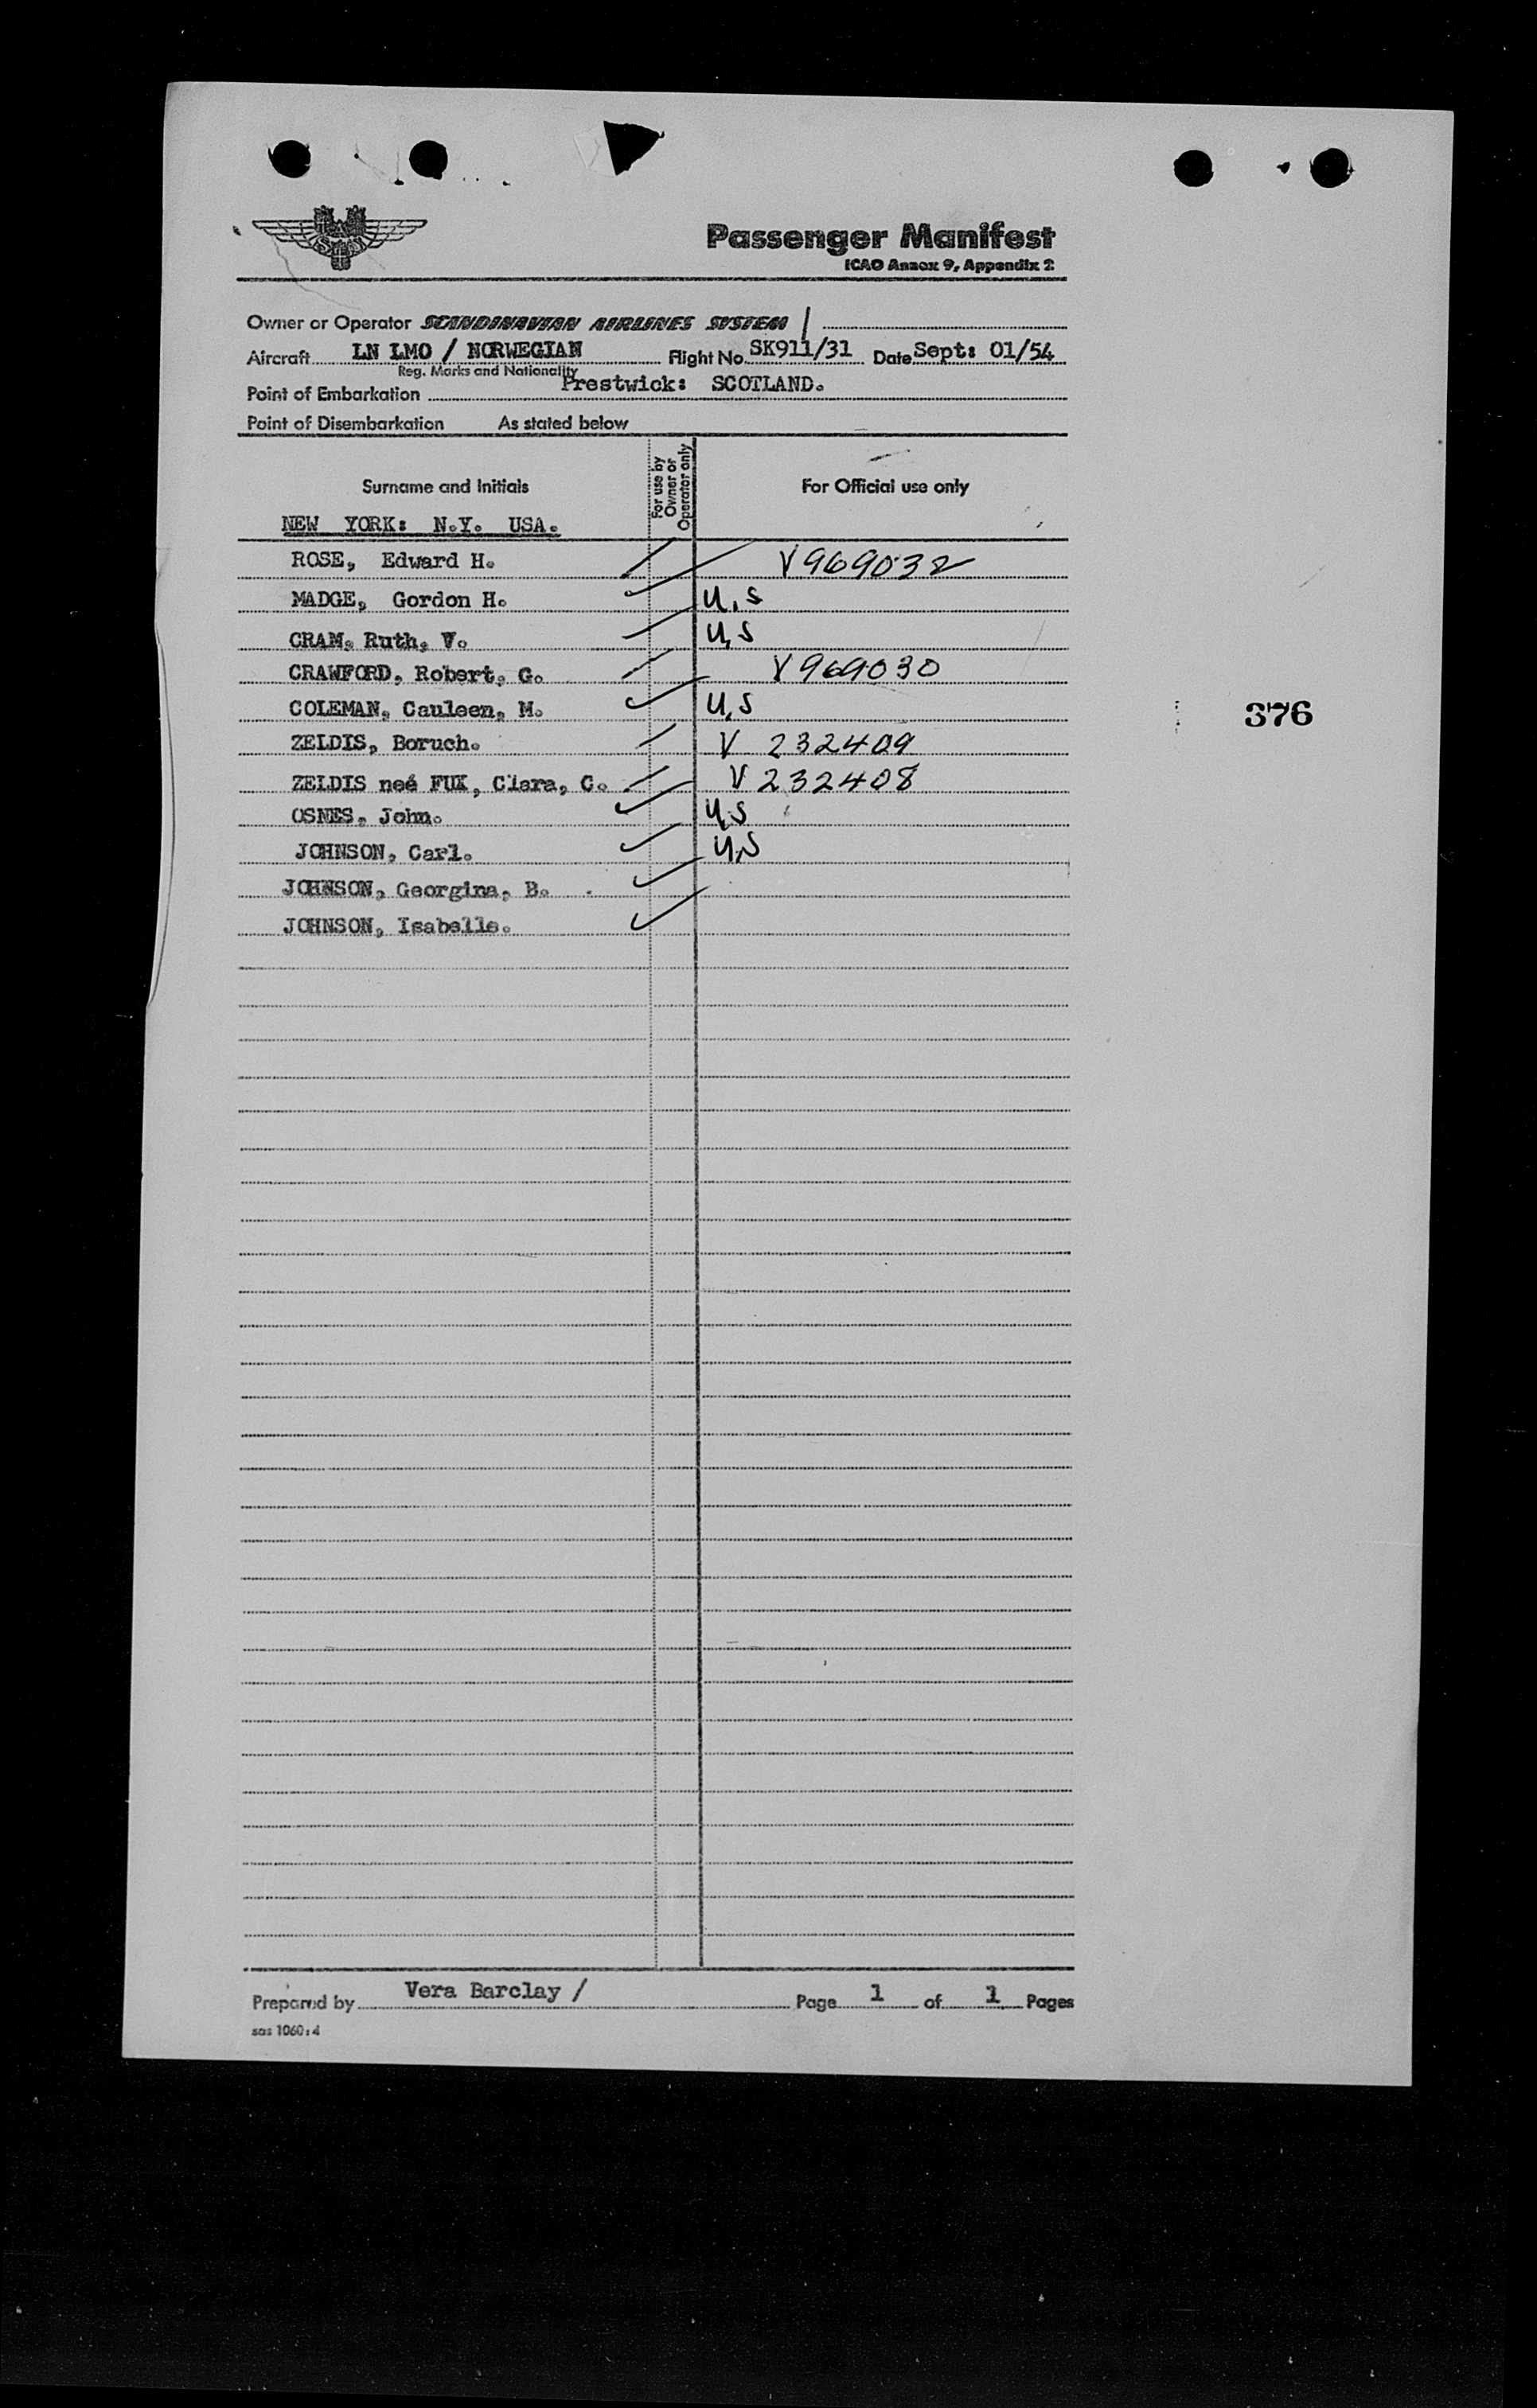 SAS
Passenger Manifest
ICAO Annex 9, Appendix 2
Owner or Operator SCANDINAVIAN AIRLINES SYSTEM /
Aircraft LN LMO / NORWEGIAN Flight No. SK911/31 Date Sept: 01/54
Reg. Marks and Nationality
Point of Embarkation Prestwick: SCOTLAND.
Point of Disembarkation As stated below
Surname and Initials For use by Owner or Operator only For Official use only
NEW YORK: N.Y. USA.
ROSE, Edward H. V969032
MADGE, Gordon H. U,S
CRAM, Ruth, V. U,S
CRAWFORD, Robert, G. V969030
COLEMAN, Cauleen, M. U,S
376
ZELDIS, Boruch. V 232409
ZELDIS neé FUX, Clara, C. V232408
OSNES, John. U,S
JOHNSON, Carl. U,S
JOHNSON, Georgina, B.
JOHNSON, Isabelle.
Prepared by Vera Barclay / Page 1 of 1 Pages
sas 1060:4